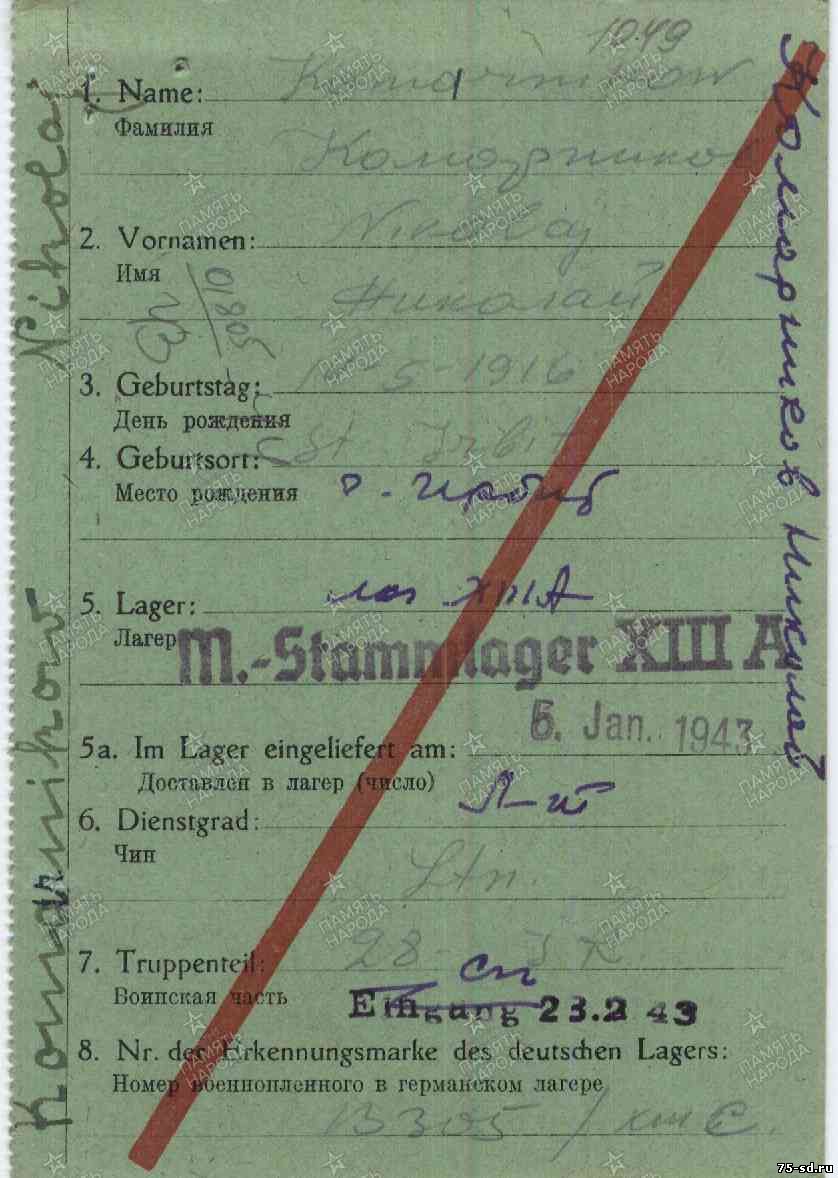 1049
1. Name: Komarnikow
Фамилия
Комарников
2. Vornamen: Nikolaj
Имя
Николай
3. Geburtstag: 5-1916
День рождения
4. Geburtsort: St Irbit
Место рождения
5. Lager: XIII A
Лагерь
M.-Stammlager XIII A
5. Jan. 1943
5a. Im Lager eingeliefert am:
Доставлен в лагер (число)
Л-т
6. Dienstgrad:
Чин
Ltn.
7. Truppenteil: 28 - I R.
сп
Воинская часть
Eingang 23.2 43
8. Nr. der Erkennungsmarke des deutschen Lagers:
Номер военнопленного в германском лагере
Komarnikow Nikolaj
Комарников Николай
ПАМЯТЬ НАРОДА
75-sd.ru